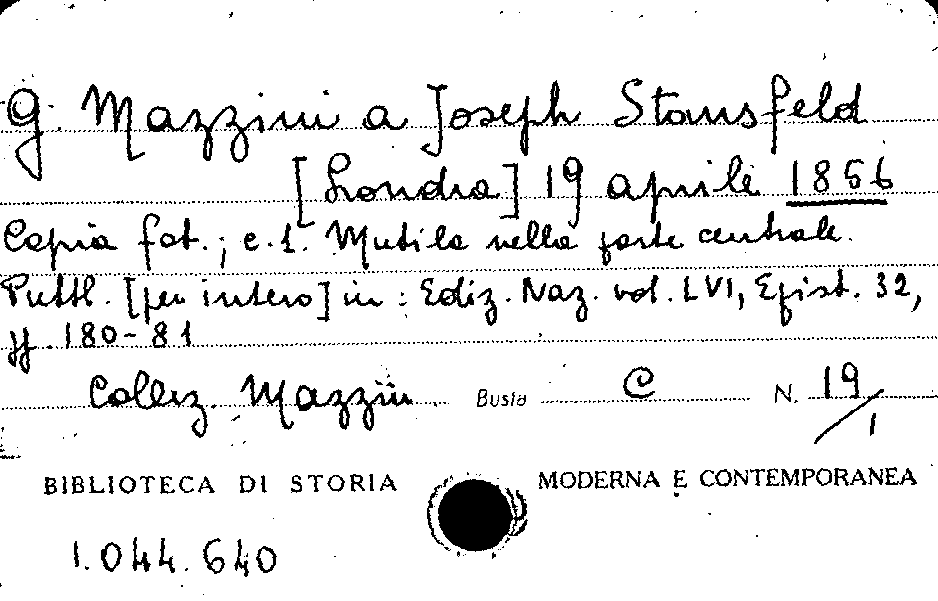 G. Mazzini a Joseph Stansfeld
[Londra] 19 aprile 1856
Copia fot.; c. 1. Mutila nella parte centrale.
Pubbl. [per intero] in: Ediz. Naz. vol. LVI, Epist. 32,
pp. 180-81
Collez. Mazzini Busta C N. 19/1
BIBLIOTECA DI STORIA MODERNA E CONTEMPORANEA
1.044.640